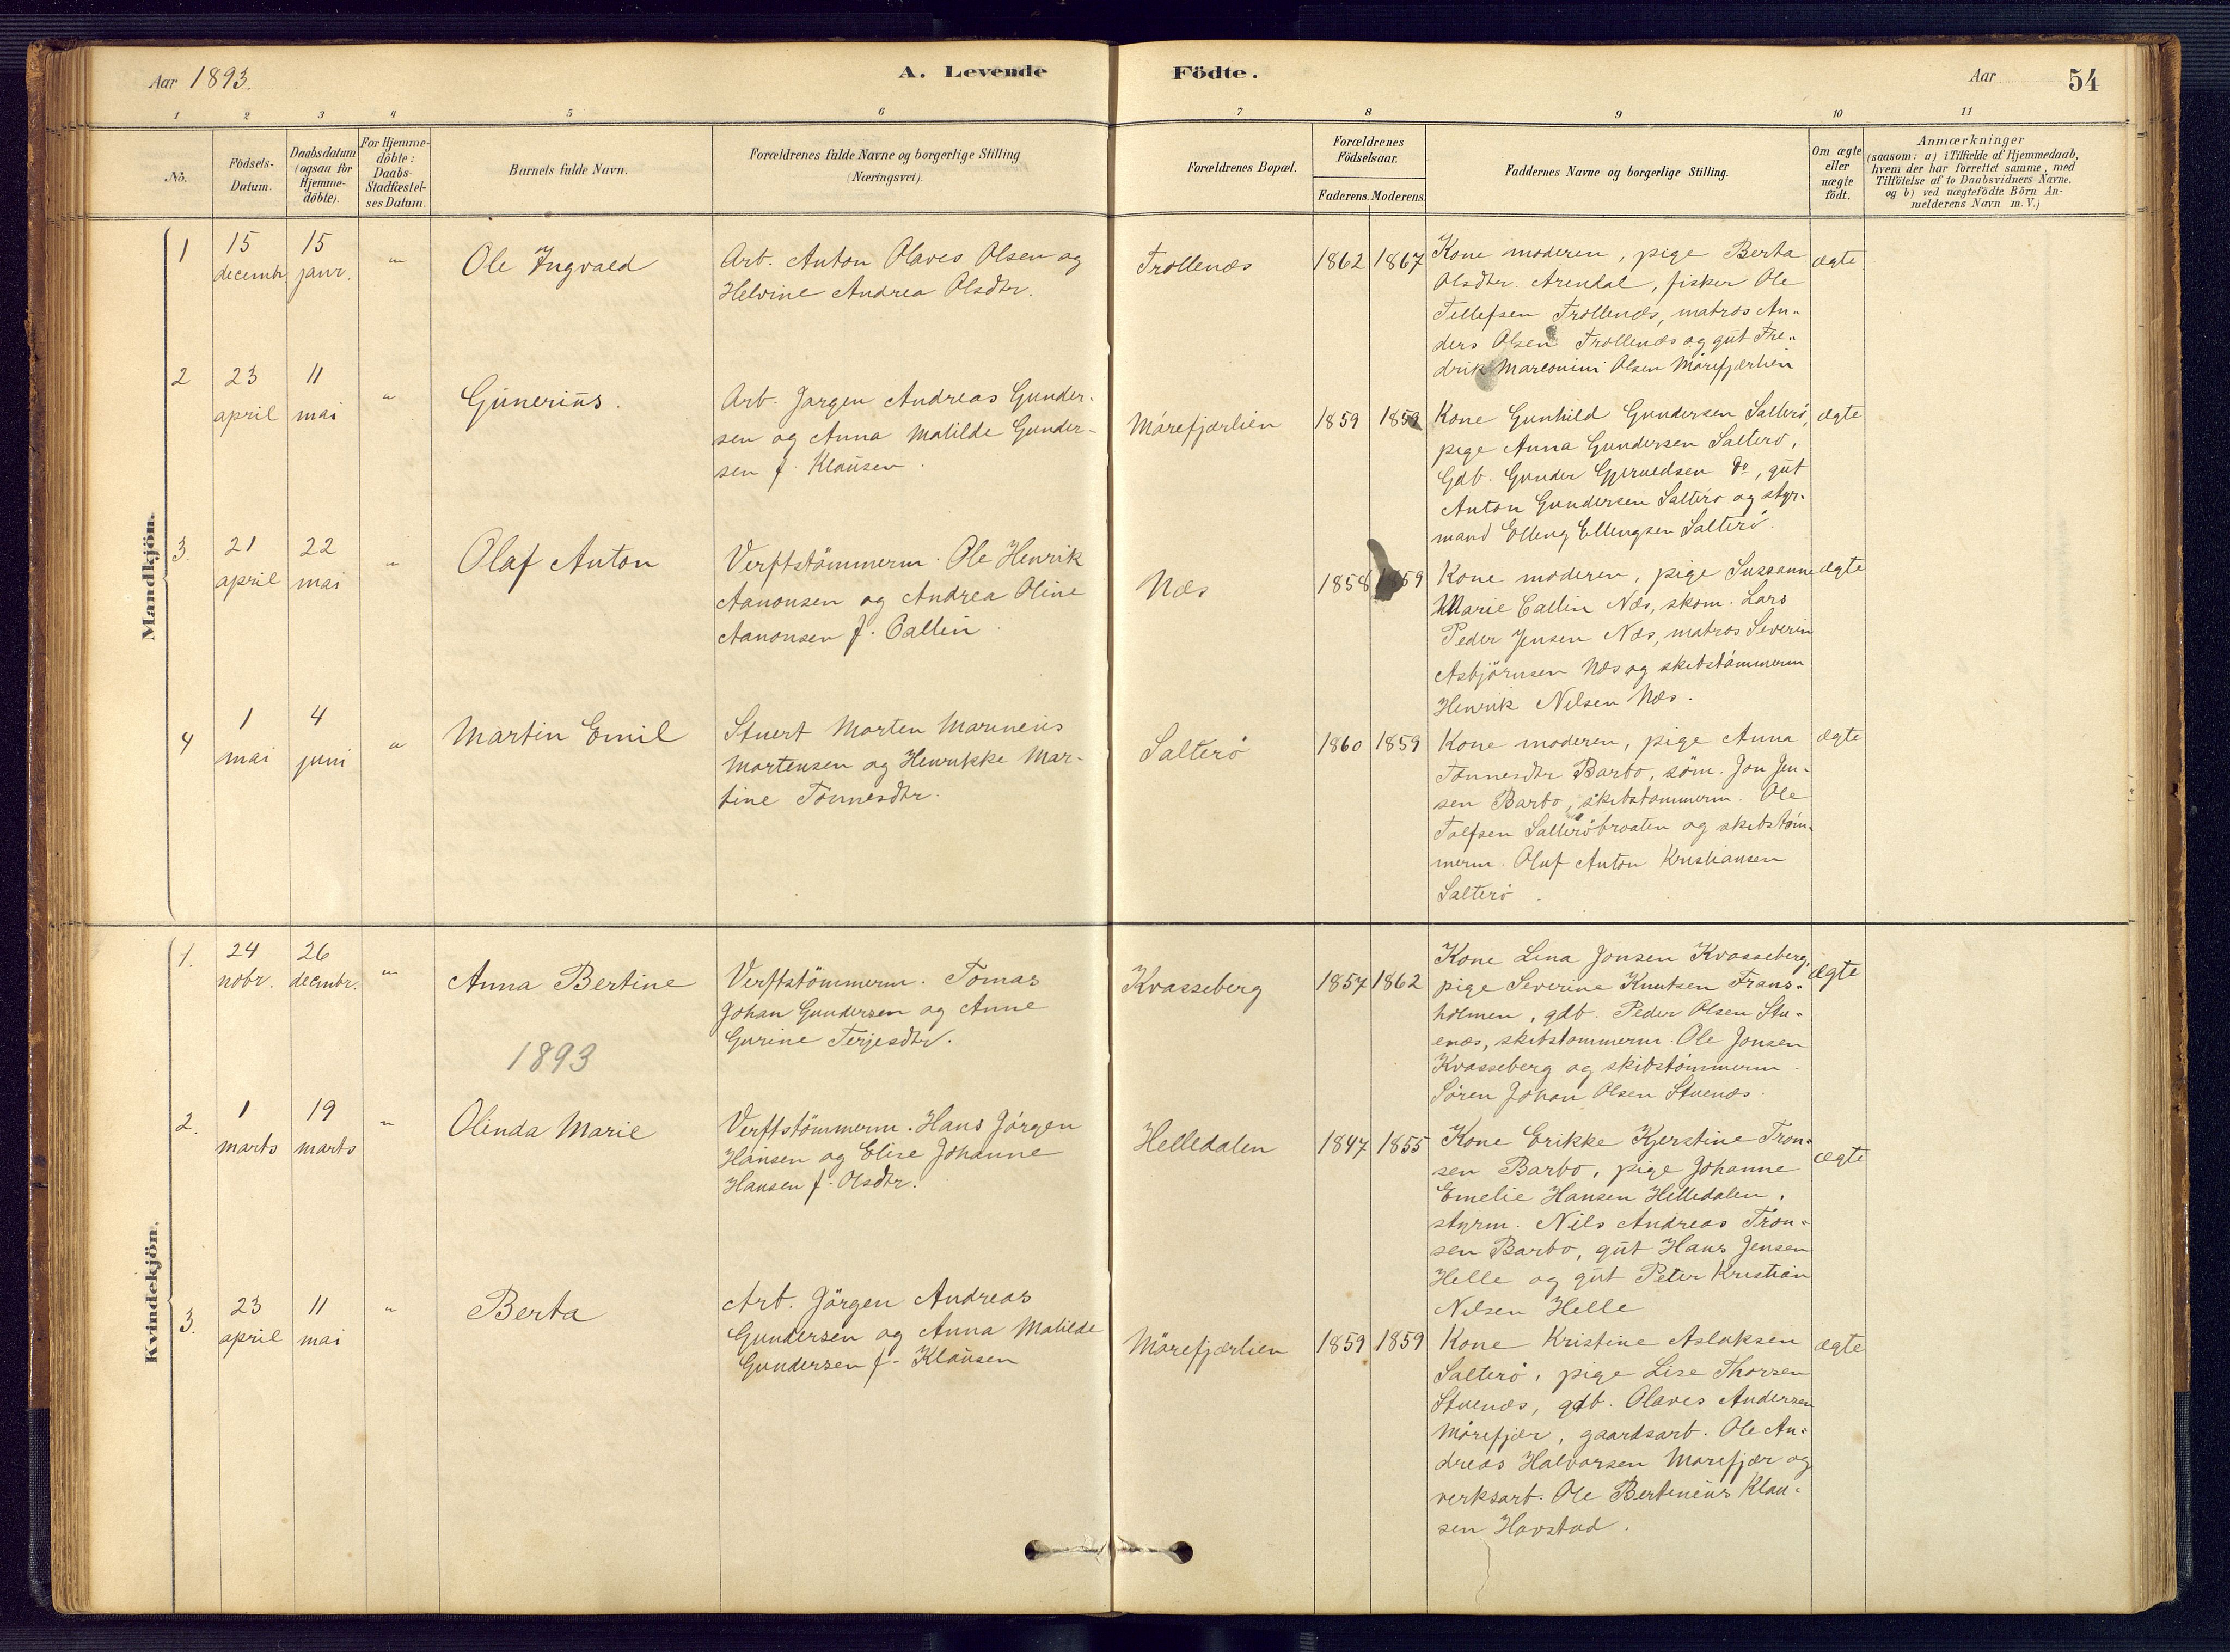 Aar 1893.
A. Levende Födte.
Aar
54
1 2 3 4 5 6 7 8 9 10 11
No.
Födsels-
Datum.
Daabsdatum
(ogsaa for
Hjemme-
döbte).
For Hjemme-
döbte:
Daabs-
Stadfæstel-
ses Datum.
Barnets fulde Navn.
Forældrenes fulde Navne og borgerlige Stilling
(Næringsvei).
Forældrenes Bopæl.
Forældrenes
Födselsaar.
Faderens. Moderens.
Faddernes Navne og borgerlige Stilling.
Om ægte
eller
uægte
födt.
Anmærkninger
(saasom: a) i Tilfælde af Hjemmedaab,
hvem der har forrettet samme, med
Tilföielse af to Daabsvidners Navne.
og b) ved uægtefödte Börn An-
melderens Navn m. V.)
Mandkjön.
1
15
decembr.
15
janr.
"
Ole Ingvald
Arb. Anton Olaves Olsen og
Helvine Andrea Olsdtr.
Trollenæs
1862 1867
Kone moderen, pige Berta
Olsdtr. Arendal, fisker Ole
Tellefsen Trollenæs, matros An-
ders Olsen Trollenæs og gut Fre-
drik Marconini Olsen Mörefjærlien
ægte
2
23
april
11
mai
"
Gunerius.
Arb. Jørgen Andreas Gunder-
sen og Anna Matilde Gunder-
sen f. Klausen.
Mörefjærlien
1859 1859
Kone Gunhild Gundersen Salterö,
pige Anna Gundersen Salterö,
Gdb. Gunder Gjeruldsen do, gut
Anton Gundersen Salterö og styr-
mand Elleng Ellengsen Salterö.
ægte
3.
21
april
22
mai
"
Olaf Anton
Verftstömmerm. Ole Henrik
Aanonsen og Andrea Oline
Aanonsen f. Callin
Næs
1858 1859
Kone moderen, pige Sussanne
Marie Callin Næs, skom. Lars
Peder Jensen Næs, matros Severin
Asbjörnsen Næs og skibstömmerm
Henrik Nilsen Næs.
ægte
4
1
mai
4
juni
"
Martin Emil
Stuert Morten Marineus
Mortensen og Henrikke Mar-
tine Tönnesdtr.
Salterö
1860 1859
Kone moderen, pige Anna
Tönnesdtr Barbo, söm. Jon Jen-
sen Barbo, skibstömmerm. Ole
Tolfsen Salteröbraaten og skibstöm-
merm. Oluf Anton Kristiansen
Salterö.
ægte
Kvindekjön.
1.
24
nobr.
26
decmbr.
"
Anna Bertine
Verftstömmerm. Tomas
Johan Gundersen og Anne
Gurine Terjesdtr.
Kvasseberg
1857 1862
Kone Lina Jonsen Kvasseberg,
pige Severine Knutsen Frans-
holmen, gdb. Peder Olsen Stu-
enæs, skibstömmerm. Ole Jonsen
Kvasseberg og skibstömmerm.
Sören Johan Olsen Stuenæs.
ægte
1893
2.
1
marts
19
marts
"
Olinda Marie
Verftstömmerm. Hans Jörgen
Hansen og Elise Johanne
Hansen f. Olsdtr.
Helledalen
1847 1855
Kone Erikke Kjerstine Tron-
sen Barbo, pige Johanne
Emelie Hansen Helledalen,
styrm. Nils Andreas Tron-
sen Barbo, gut Hans Jensen
Helle og gut Peter Kristian
Nilsen Helle
ægte
3.
23
april
11
mai
"
Berta
Arb. Jörgen Andreas
Gundersen og Anna Matilde
Gundersen f. Klausen
Mörefjærlien
1859 1859
Kone Kristine Aslaksen
Salterö, pige Lise Thorsen
Stuenæs, gdb. Olaves Andersen
Mörefjær, gaardsarb. Ole An-
dreas Halvorsen Mörefjær og
verksarb. Ole Bertineus Klau-
sen Havstad.
ægte